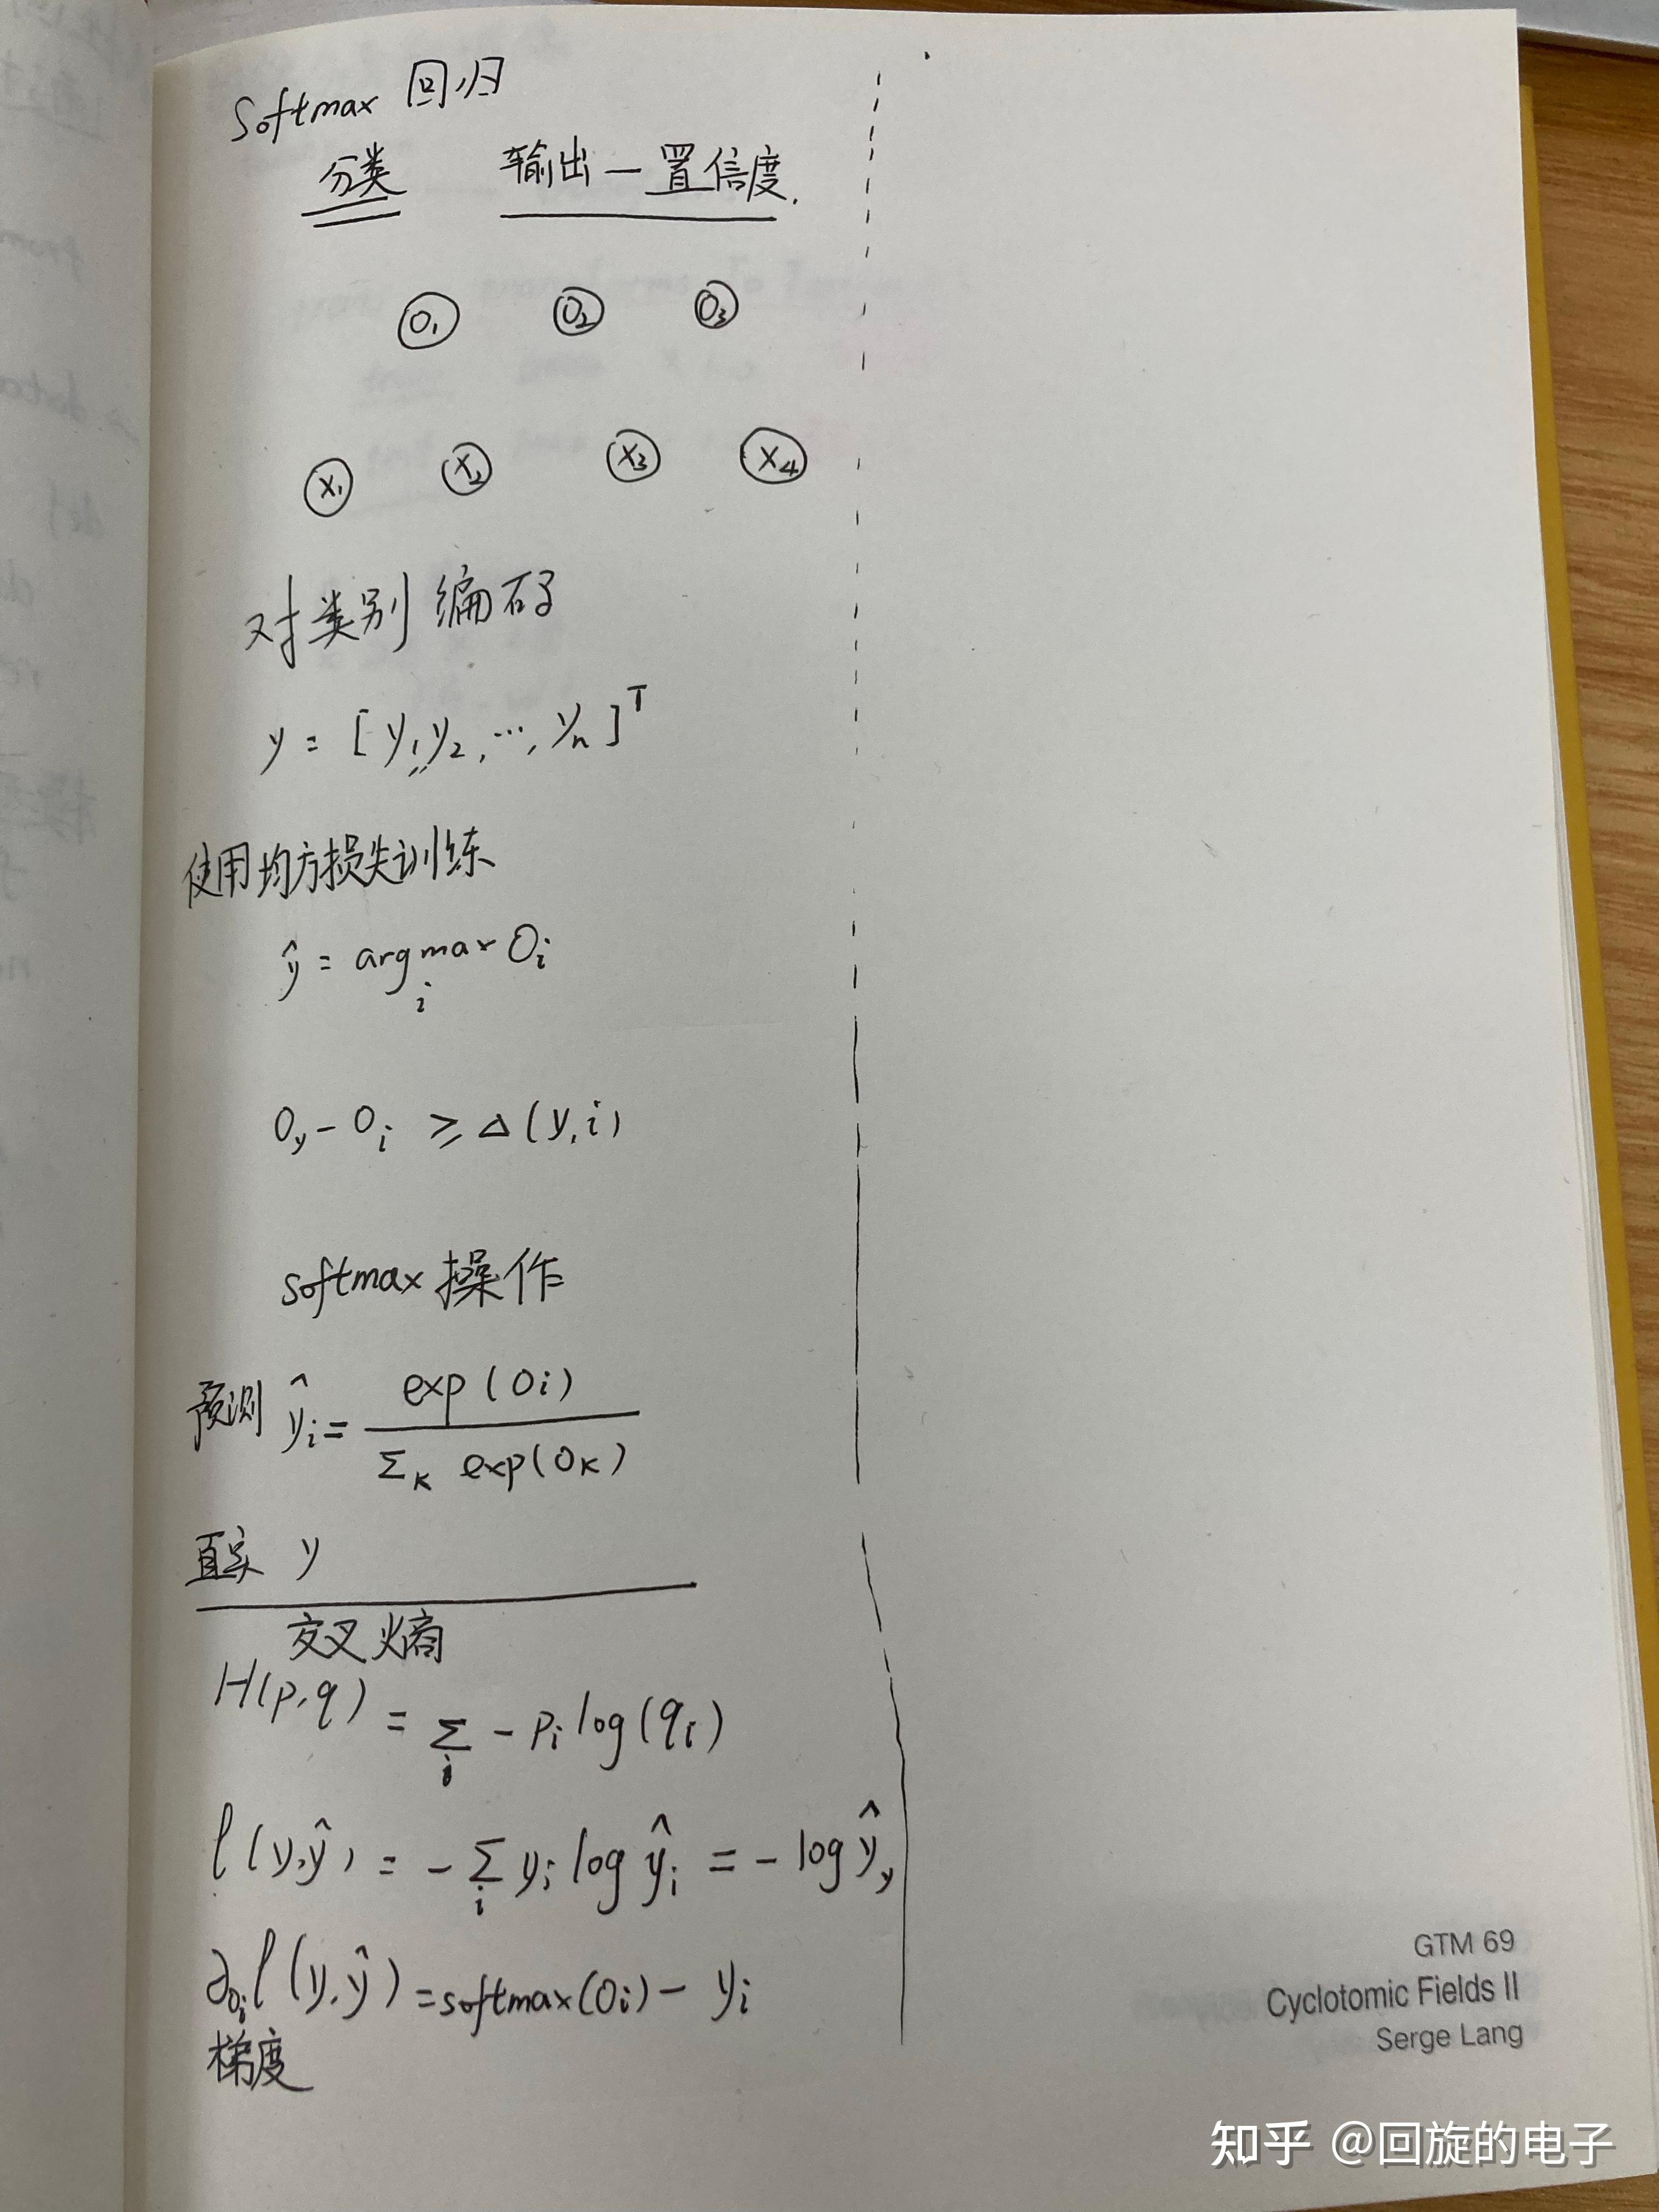 Softmax 回归
分类 输出一置信度.
O₁ O₂ O₃
X₁ X₂ X₃ X₄
对类别编码
y = [y₁, y₂, ..., yₙ]ᵀ
使用均方损失训练
ŷ = argmax_i O_i
O_y - O_i ≥ Δ(y, i)
softmax 操作
预测 ŷ_i = exp(O_i) / Σ_K exp(O_K)
真实 y
交叉熵
H(p, q) = Σ_i - p_i log(q_i)
l(y, ŷ) = - Σ_i y_i log ŷ_i = - log ŷ_y
∂_{O_i} l(y, ŷ) = softmax(O_i) - y_i
梯度
GTM 69
Cyclotomic Fields II
Serge Lang
知乎 @回旋的电子